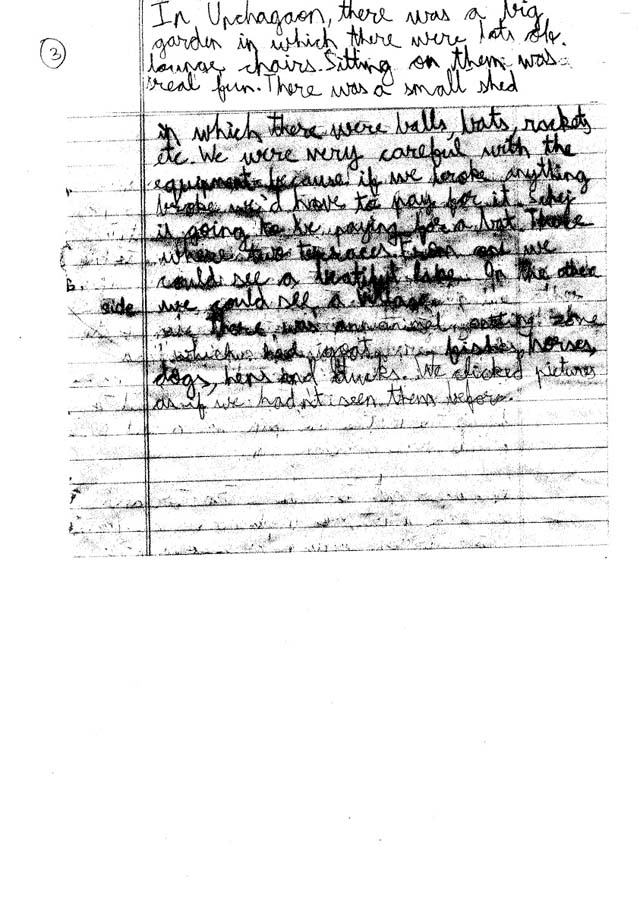 3
In Unchagaon, there was a big
garden in which there were lots of.
lounge chairs. Sitting on them was
real fun. There was a small shed
in which there were balls, bats, rockets
etc. We were very careful with the
equipment because if we broke anything
broke we'd have to pay for it.
is going to be paying for a bat. There
where two terraces. From one we
could see a beatiful lake. In the other
side we could see a village.
there was animal zone
which had goat, fishes, horses,
dogs, hens and ducks. We clicked pictures
as if we hadn't seen them before.